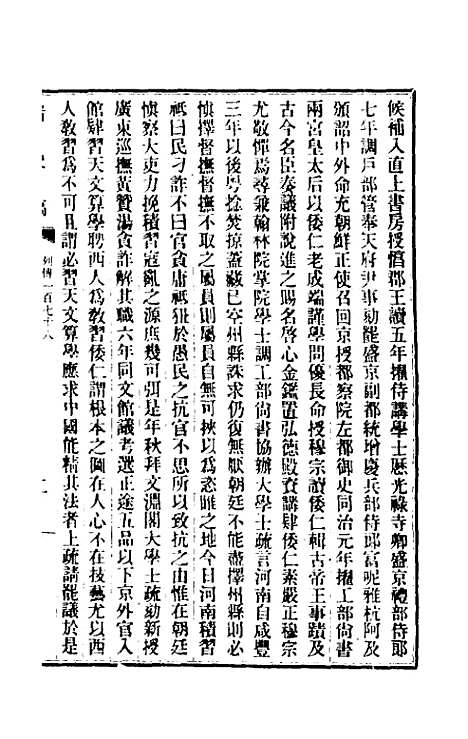 候補入直上書房授惇郡王讀五年擢侍講學士歷光祿寺卿盛京禮部侍郎
七年調戶部管奉天府尹事劾罷盛京副都統增慶兵部侍郎富呢雅杭阿及
頒詔中外命充朝鮮正使召回京授都察院左都御史同治元年擢工部尚書
兩宮皇太后以倭仁老成端謹學問優長命授穆宗讀倭仁輯古帝王事蹟及
古今名臣奏議附說進之賜名啓心金鑑置弘德殿資講肄倭仁素嚴正穆宗
尤敬憚焉尋兼翰林院掌院學士調工部尚書協辦大學士疏言河南自咸豐
三年以後粵捻焚掠蓋藏已空州縣誅求仍復無厭朝廷不能盡擇州縣則必
愼擇督撫督撫不取之屬員則屬員自無可挾以爲恣睢之地今日河南積習
祇曰民刁詐不曰官貪庸祇狃於愚民之抗官不思所以致抗之由惟在朝廷
愼察大吏力挽積習寇亂之源庶幾可弭是年秋拜文淵閣大學士疏劾新授
廣東巡撫黃贊湯貪詐解其職六年同文館議考選正途五品以下京外官入
館肄習天文算學聘西人爲教習倭仁謂根本之圖在人心不在技藝尤以西
人教習爲不可且謂必習天文算學應求中國能精其法者上疏請罷議於是
清史稿 列傳一百七十八 二